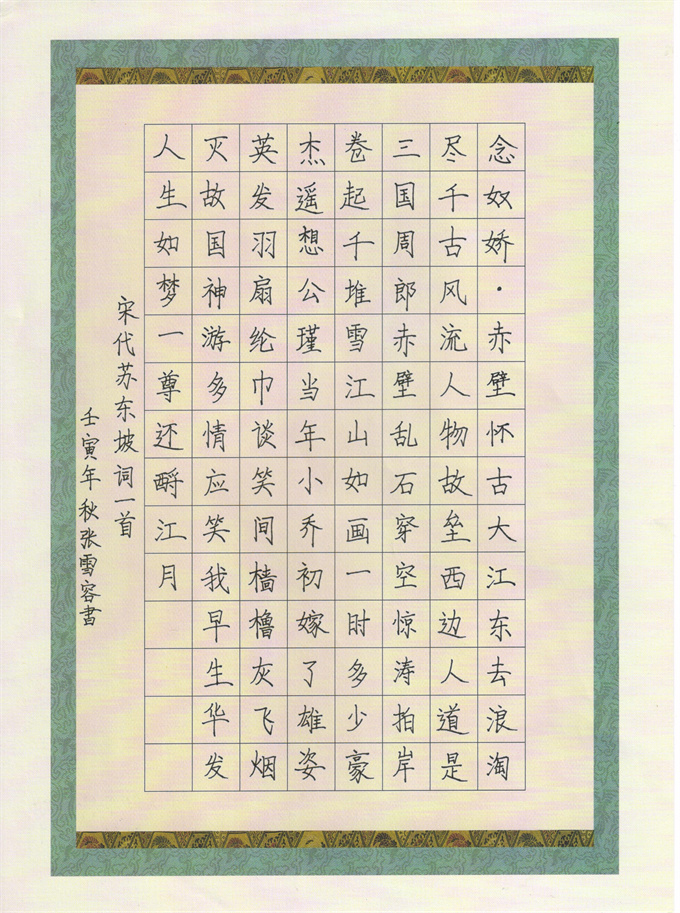 念奴娇·赤壁怀古大江东去浪淘
尽千古风流人物故垒西边人道是
三国周郎赤壁乱石穿空惊涛拍岸
卷起千堆雪江山如画一时多少豪
杰遥想公瑾当年小乔初嫁了雄姿
英发羽扇纶巾谈笑间樯橹灰飞烟
灭故国神游多情应笑我早生华发
人生如梦一尊还酹江月
宋代苏东坡词一首
壬寅年秋张雪容书